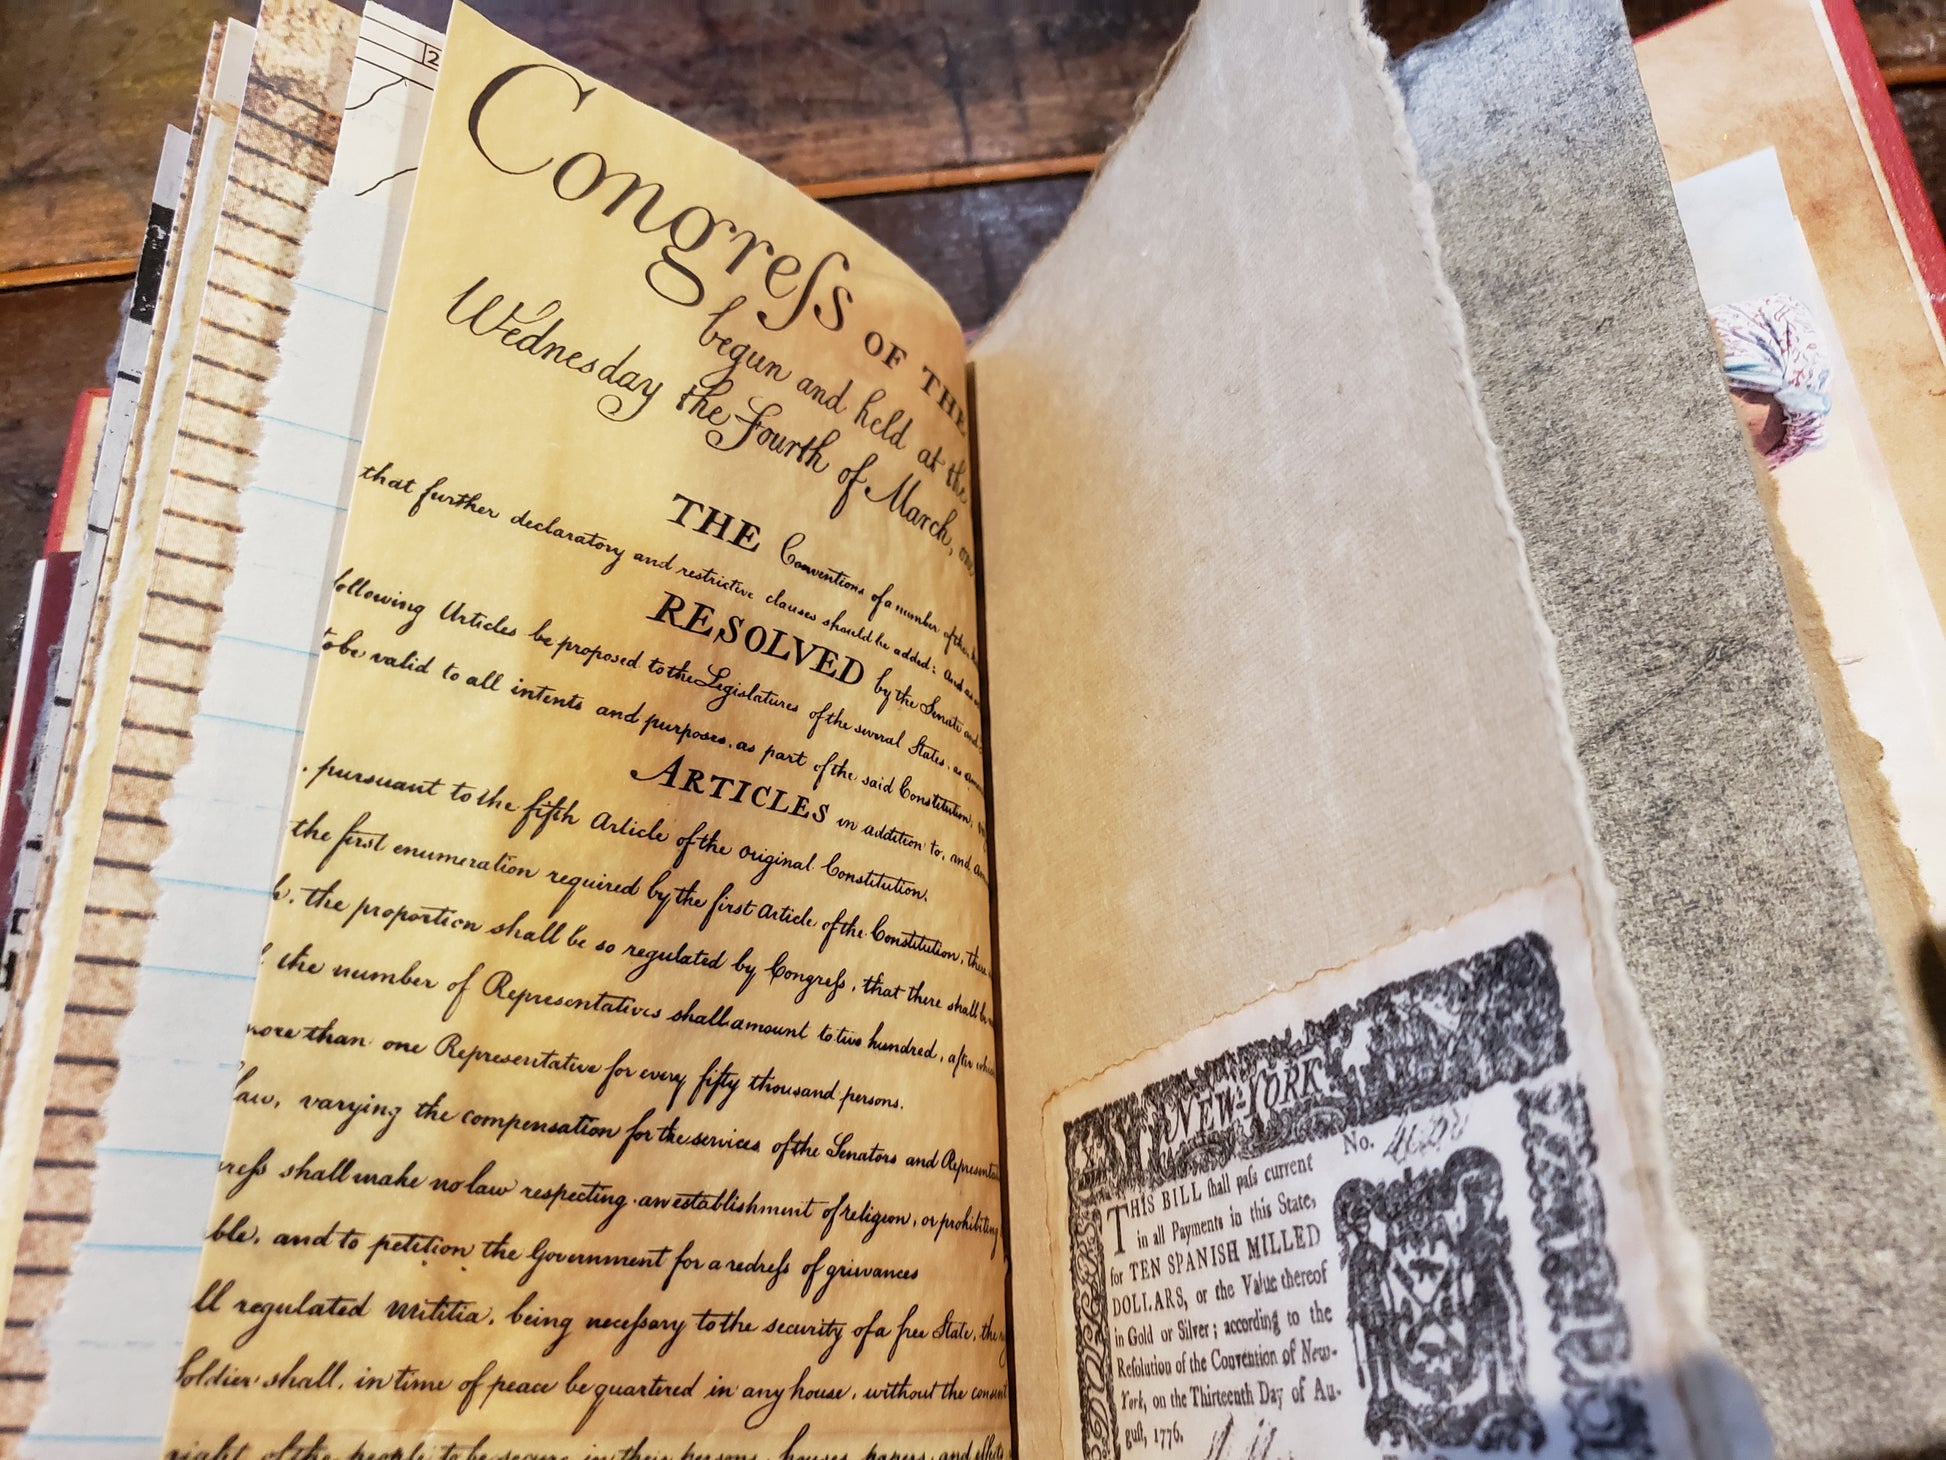 2
Congreſs OF THE
begun and held at the
Wednesday the Fourth of March,
THE Conventions of a number of the
that further declaratory and restrictive clauses should be added: And as
RESOLVED by the Senate and
following Articles be proposed to the Legislatures of the several States, as
to be valid to all intents and purposes, as part of the said Constitution,
ARTICLES in addition to, and
, pursuant to the fifth Article of the original Constitution.
the first enumeration required by the first Article of the Constitution, there
, the proportion shall be so regulated by Congreſs, that there shall be
the number of Representatives shall amount to two hundred, after which
more than one Representative for every fifty thousand persons.
law, varying the compensation for the services of the Senators and Representa
reſs shall make no law respecting an establishment of religion, or prohibiting
ble, and to petition the Government for a redreſs of grievances
ll regulated Militia, being neceſsary to the security of a free State, the
Soldier shall, in time of peace be quartered in any house, without the consent
right of the people to be secure in their persons, houses, papers, and effects
NEW-YORK
No.
THIS BILL ſhall paſs current
in all Payments in this State,
for TEN SPANISH MILLED
DOLLARS, or the Value thereof
in Gold or Silver; according to the
Reſolution of the Convention of New-
York, on the Thirteenth Day of Au-
guſt, 1776.